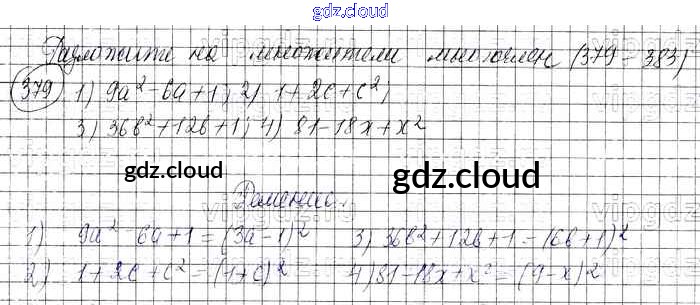 gdz.cloud
Разложите на множители многочлен (379-383)
379 1) 9a² - 6a + 1; 2) 1 + 2c + c²;
3) 36b² + 12b + 1; 4) 81 - 18x + x²
gdz.cloud gdz.cloud
Решение.
1) 9a² - 6a + 1 = (3a - 1)² 3) 36b² + 12b + 1 = (6b + 1)²
2) 1 + 2c + c² = (1 + c)² 4) 81 - 18x + x² = (9 - x)²